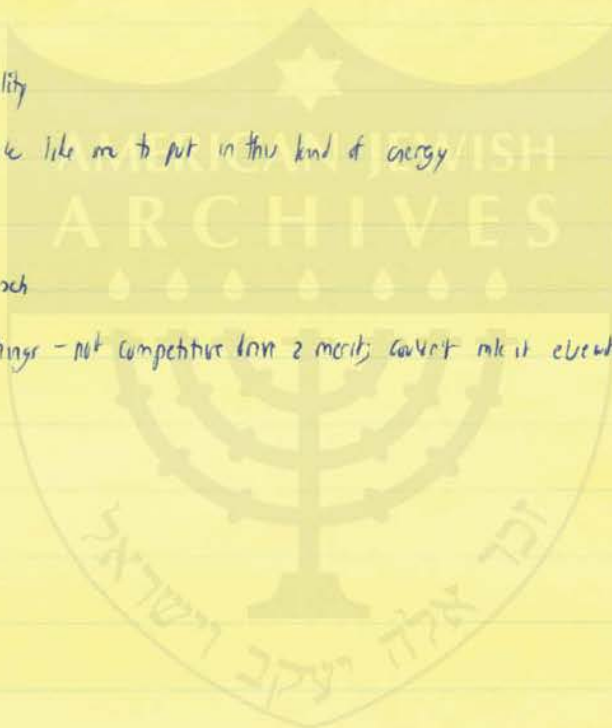 lity
like me to put in this kind of energy
AMERICAN JEWISH
ARCHIVES
och
ings - not competitive 2 merit; couldn't
זכר אלה יעקב וישראל